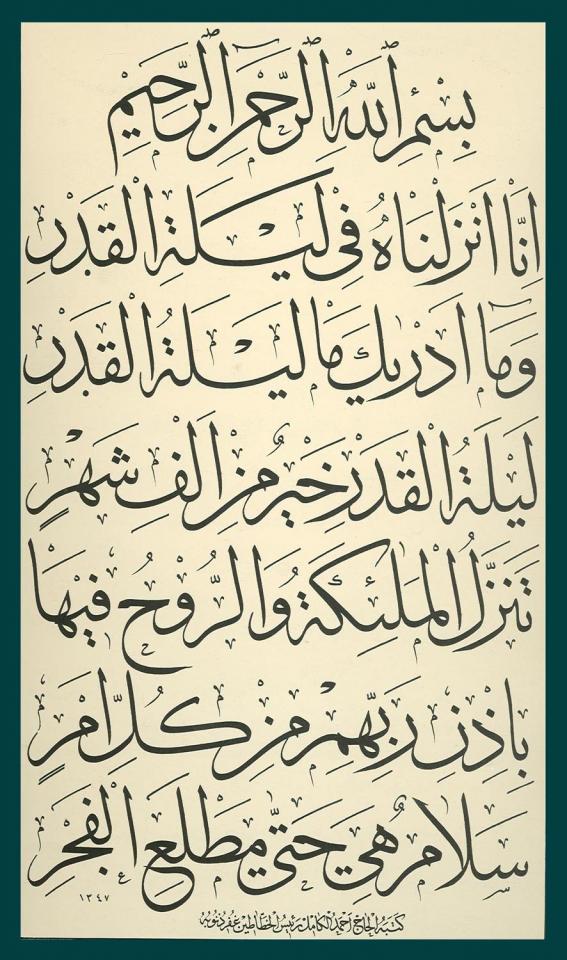 بِسْمِ اللَّهِ الرَّحْمَنِ الرَّحِيمِ
اِنَّا اَنْزَلْنَاهُ فِى لَيْلَةِ الْقَدْرِ
وَمَا اَدْرٰيكَ مَا لَيْلَةُ الْقَدْرِ
لَيْلَةُ الْقَدْرِ خَيْرٌ مِنْ اَلْفِ شَهْرٍ
تَنَزَّلُ الْمَلٰئِكَةُ وَالرُّوحُ فِيهَا
بِاِذْنِ رَبِّهِمْ مِنْ كُلِّ اَمْرٍ
سَلَامٌ هِىَ حَتّٰى مَطْلَعِ الْفَجْرِ
١٣٤٧
كتبه الحاج احمد الكامل رئيس الخطاطين غفر ذنوبه